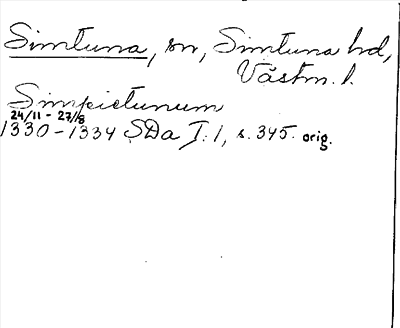 Simtuna, sn, Simtuna hd,
Västm. l.
Simpictunum
24/11 - 27/8
1330-1334 SDa I:1, s. 345. orig.